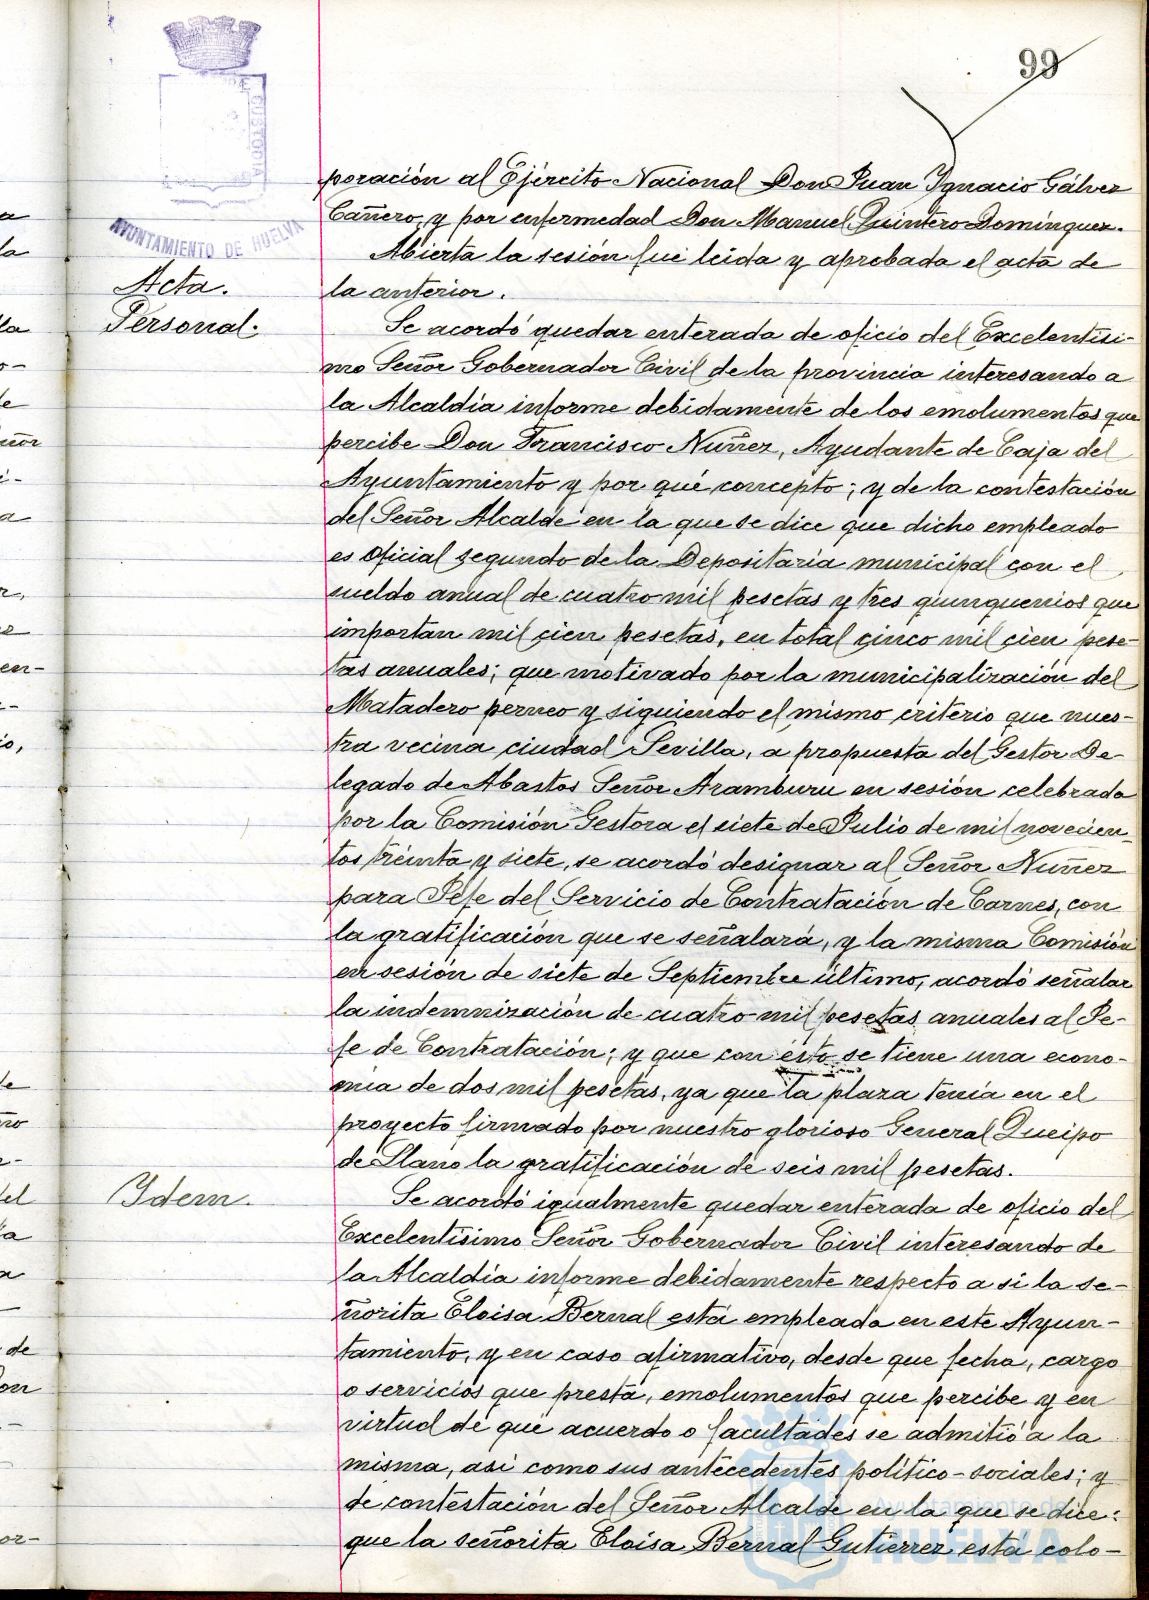 99
AYUNTAMIENTO DE HUELVA
poración al Ejército Nacional Don Juan Ygnacio Gálvez
Cañero, y por enfermedad Don Manuel Quintero Domínguez.
Abierta la sesión fué leida y aprobada el acta de
Acta.
la anterior.
Personal.
Se acordó quedar enterada de oficio del Excelentísi-
mo Señor Gobernador Civil de la provincia interesando a
la Alcaldía informe debidamente de los emolumentos que
percibe Don Francisco Nuñez, Ayudante de Caja del
Ayuntamiento y por qué concepto; y de la contestación
del Señor Alcalde en la que se dice que dicho empleado
es oficial segundo de la Depositaría municipal con el
sueldo anual de cuatro mil pesetas y tres quinquenios que
importan mil cien pesetas, en total cinco mil cien pese-
tas anuales; que motivado por la municipalización del
Matadero perneo y siguiendo el mismo criterio que nues-
tra vecina ciudad Sevilla, a propuesta del Gestor De-
legado de Abastos Señor Aramburu en sesión celebrada
por la Comisión Gestora el siete de Julio de mil novecien-
tos treinta y siete, se acordó designar al Señor Nuñez
para Jefe del Servicio de Contratación de Carnes, con
la gratificación que se señalará, y la misma Comisión
en sesión de siete de Septiembre último, acordó señalar
la indemnización de cuatro mil pesetas anuales al Je-
fe de Contratación; y que con ésto se tiene una econo-
mía de dos mil pesetas, ya que la plaza tenía en el
proyecto firmado por nuestro glorioso General Queipo
de Llano la gratificación de seis mil pesetas.
Ydem.
Se acordó igualmente quedar enterada de oficio del
Excelentísimo Señor Gobernador Civil interesando de
la Alcaldía informe debidamente respecto a si la se-
ñorita Eloisa Bernal está empleada en este Ayun-
tamiento, y en caso afirmativo, desde que fecha, cargo
o servicios que presta, emolumentos que percibe y en
virtud de qué acuerdo o facultades se admitió a la
misma, así como sus antecedentes político-sociales; y
de contestación del Señor Alcalde en la que se dice:
que la señorita Eloisa Bernal Gutierrez está colo-
Ayuntamiento de
HUELVA